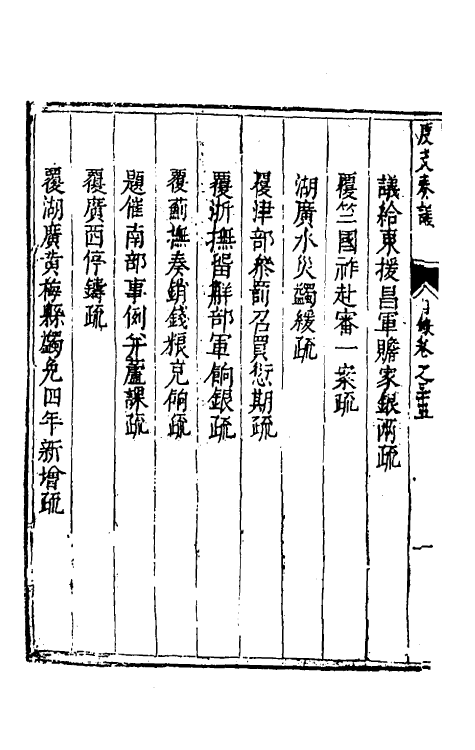 度支奏議
目錄卷之三五
一
議給東援昌軍贍家銀兩疏
覆竺國祚赴審一案疏
湖廣水災蠲緩疏
覆津部參罰召買愆期疏
覆浙撫留觧部軍餉銀疏
覆薊撫奏銷錢粮克餉疏
題催南部事例并蘆課疏
覆廣西停鑄疏
覆湖廣黄梅縣蠲免四年新增疏